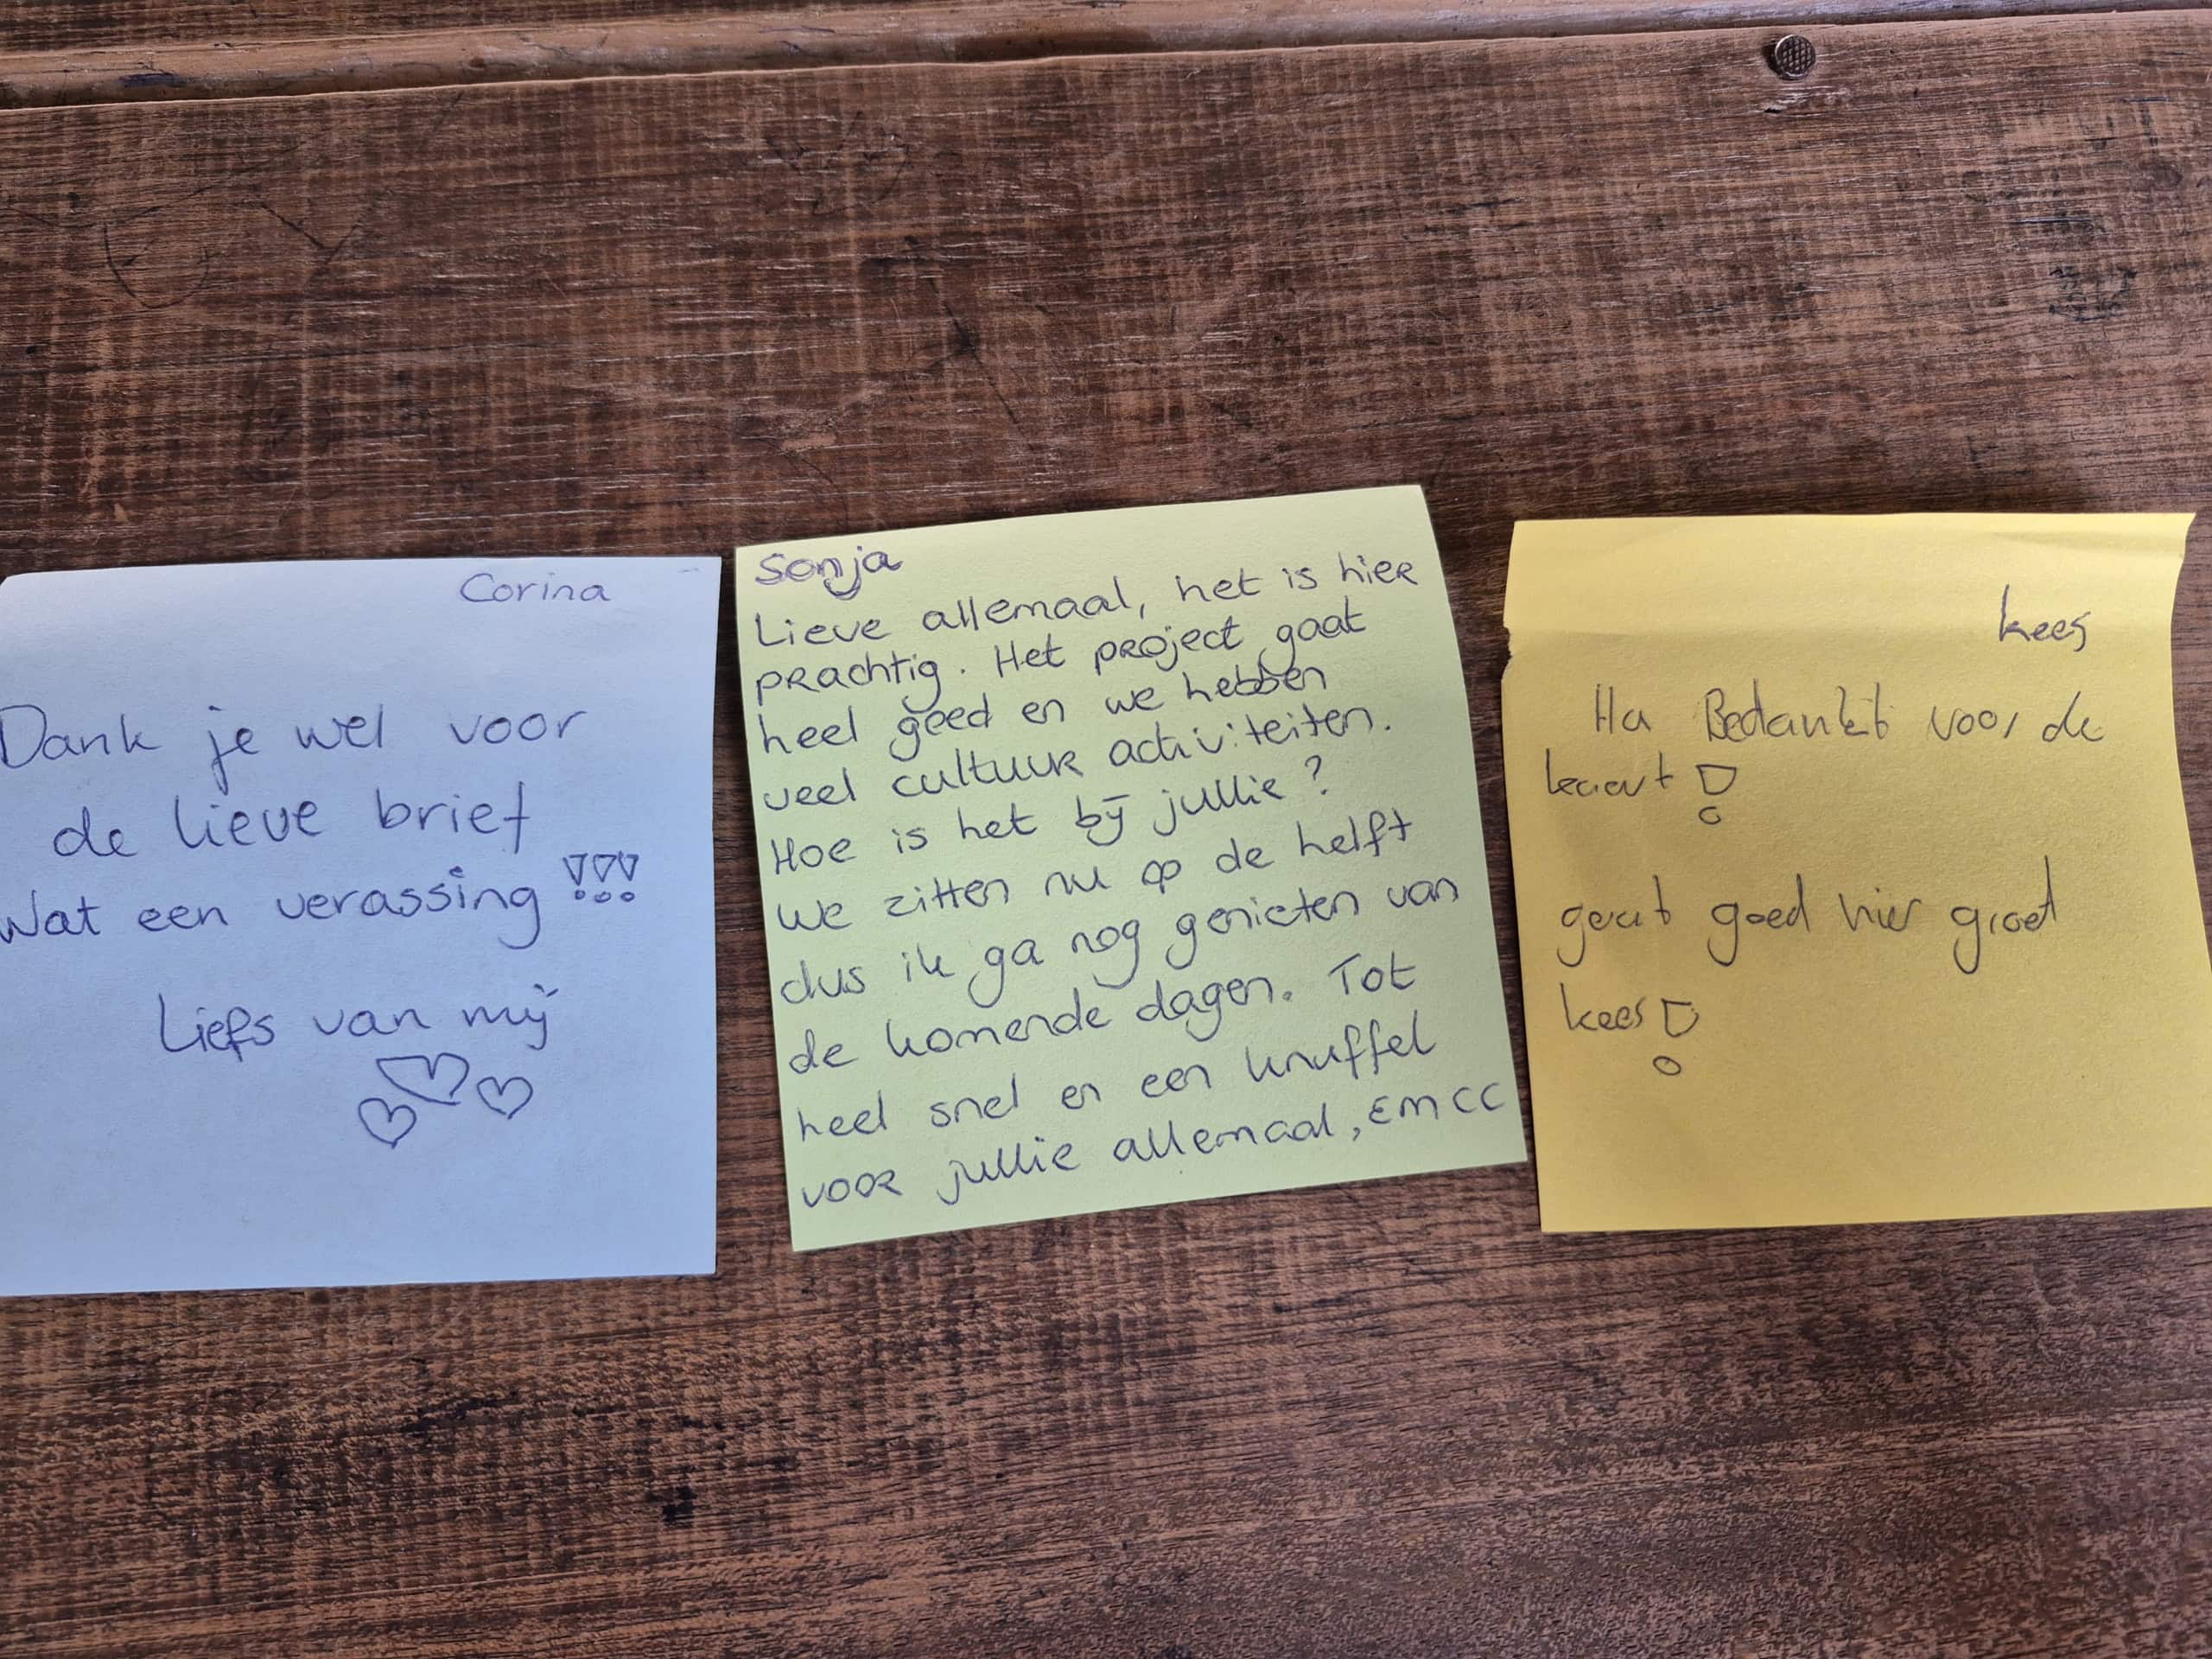 Corina
Dank je wel voor
de lieve brief
Wat een verassing !!!
Liefs van mij
Sonja
Lieve allemaal, het is hier
prachtig. Het project gaat
heel goed en we hebben
veel cultuur activiteiten.
Hoe is het bij jullie?
We zitten nu op de helft
dus ik ga nog genieten van
de komende dagen. Tot
heel snel en een knuffel
voor jullie allemaal, EMCC
kees
Ha Bedankt voor de
!
gaat goed hier groet
kees!